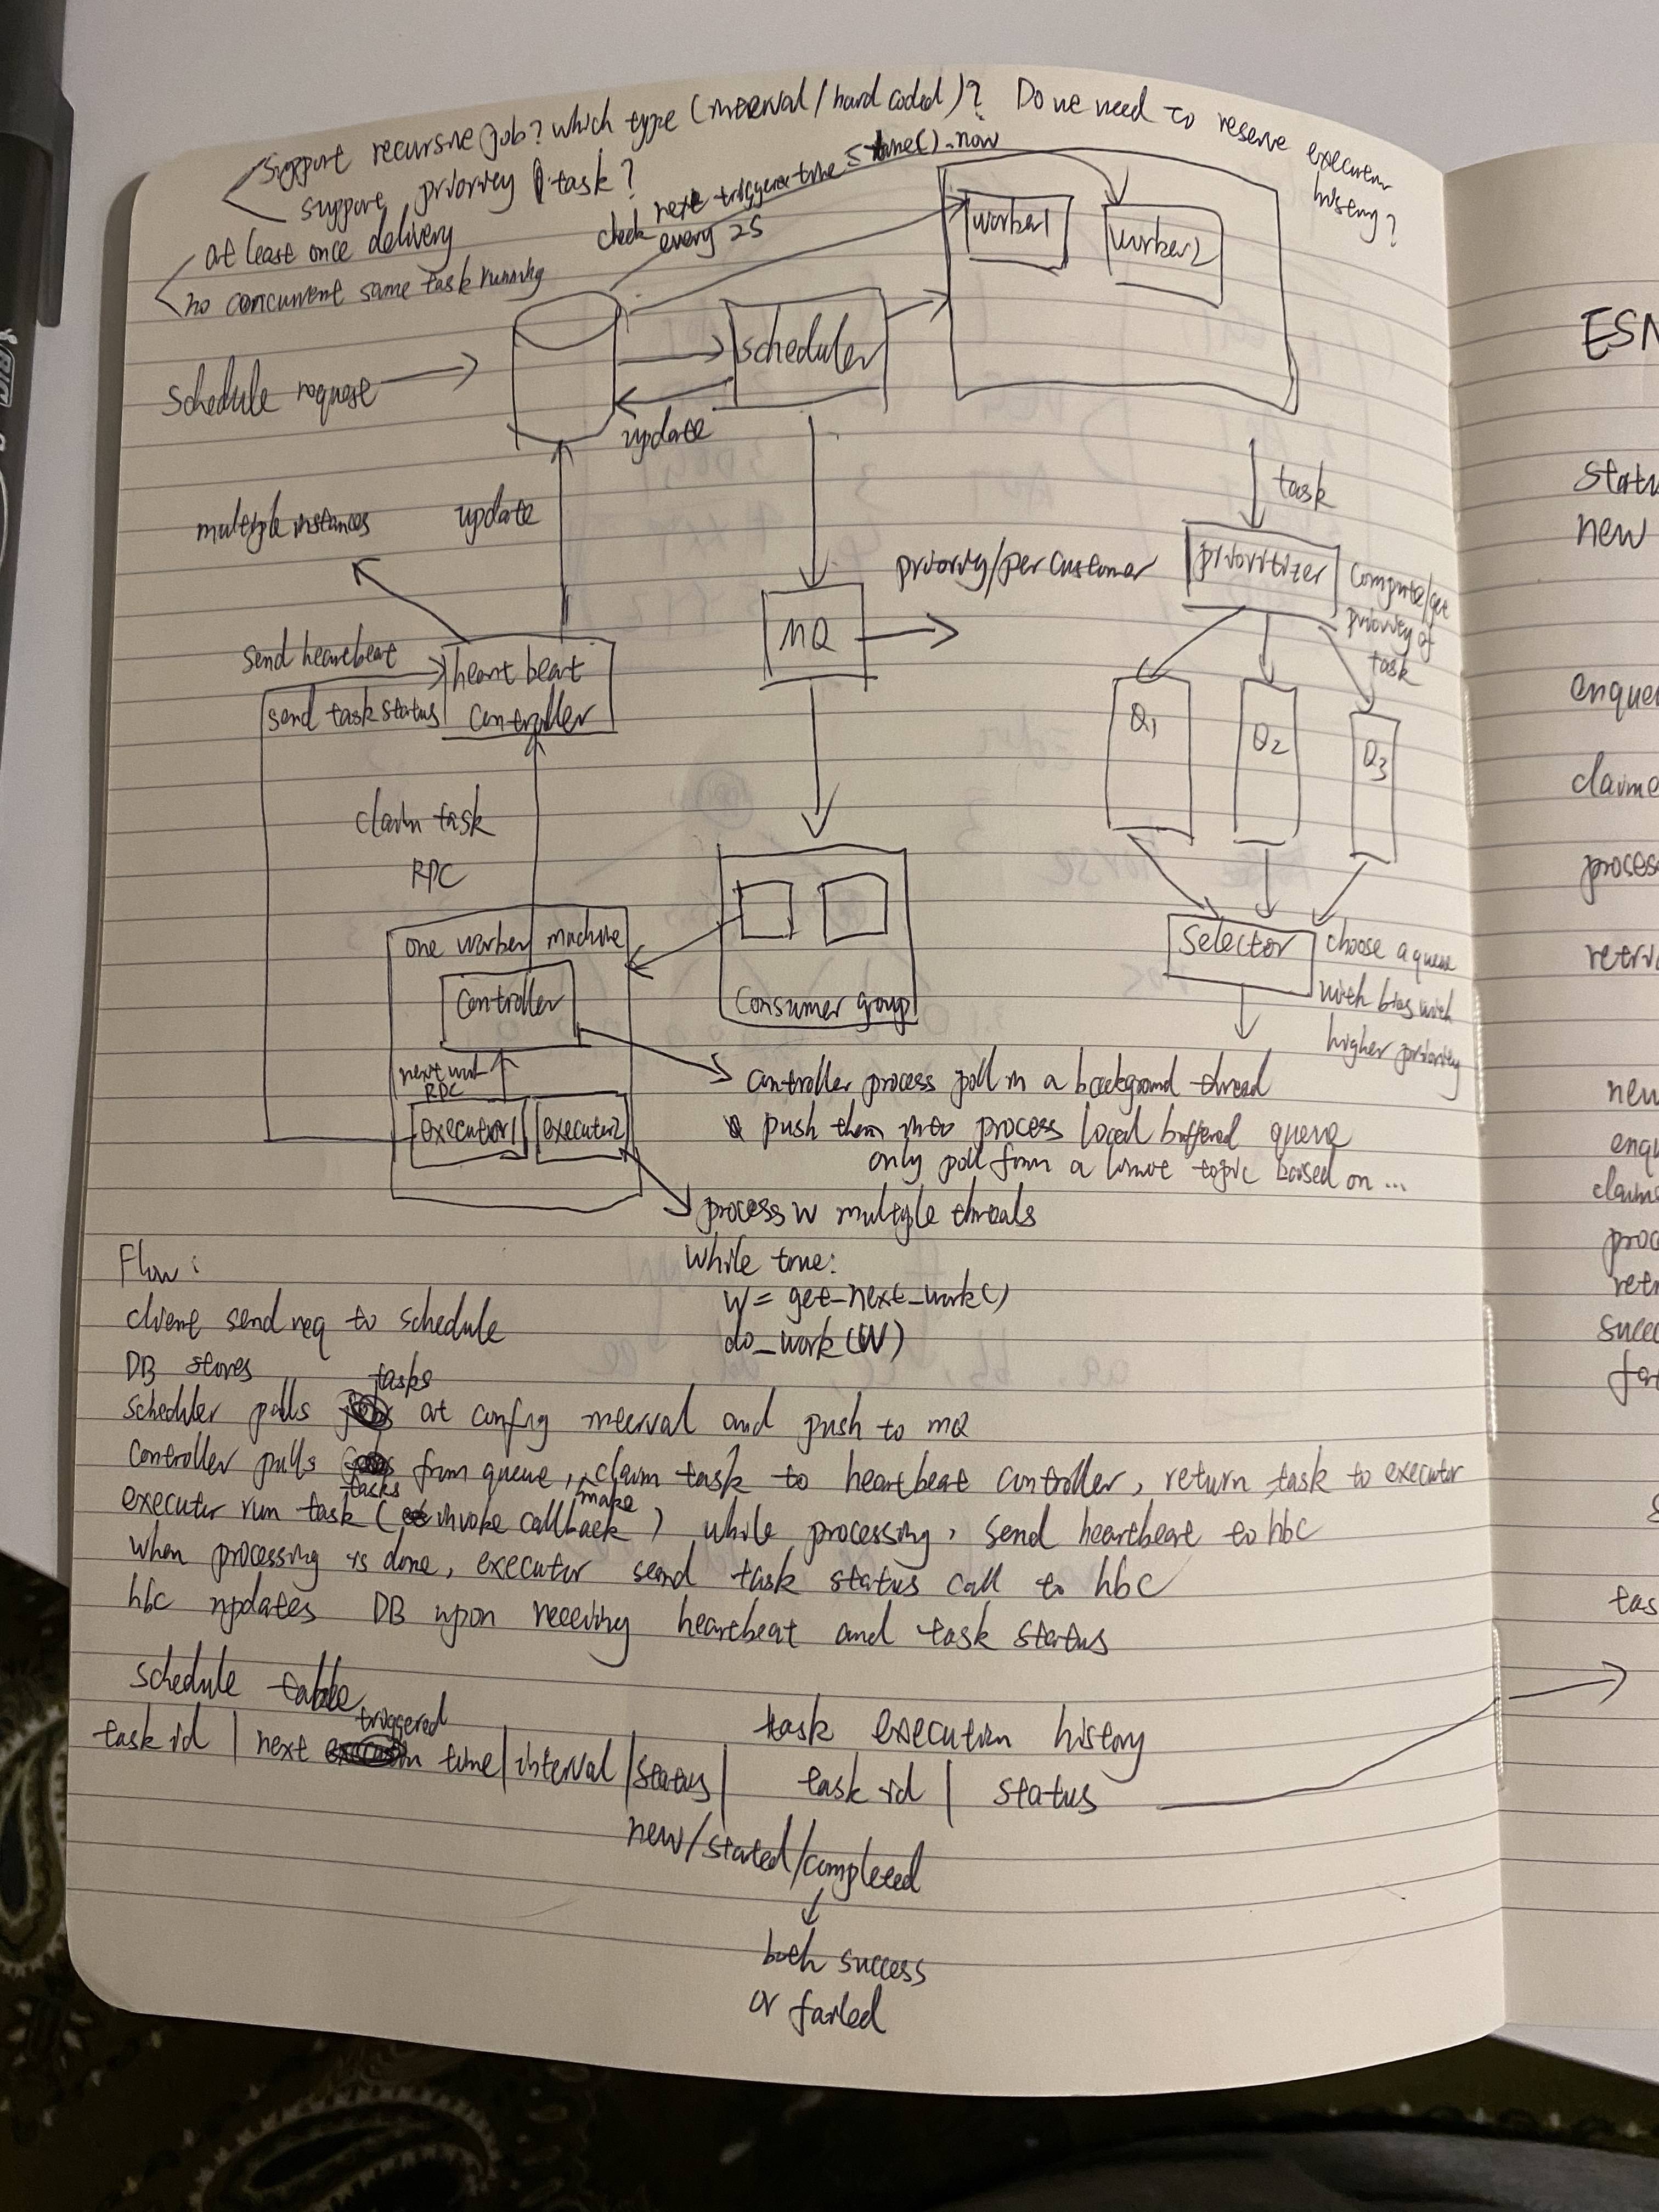 support recursive job? which type (interval/hard coded)? Do we need to reserve execution history?
support priority task?
at least once delivery
no concurrent same task running
check next trigger time ≤ time().now
every 2s
worker1
worker2
schedule request
scheduler
update
multiple instances
update
task
prioritizer
compute/get
priority of
task
priority/per customer
MQ
send heartbeat
send task status
heart beat
controller
Q1
Q2
Q3
claim task
RPC
one worker machine
controller
next work
RPC
executor1
executor2
consumer group
selector
choose a queue
with bias with
higher priority
controller process poll in a background thread
push them into process local buffered queue
only poll from a limit topic based on ...
process w multiple threads
while true:
w = get_next_work()
do_work(w)
Flow:
client send req to schedule
DB stores
scheduler pulls tasks at config interval and push to MQ
controller pulls tasks from queue, make claim task to heartbeat controller, return task to executor
executor run task (invoke callback) while processing, send heartbeat to hbc
when processing is done, executor send task status call to hbc
hbc updates DB upon receiving heartbeat and task status
schedule table
task id | next triggered time | interval | status |
new/started/completed
both success
or failed
task execution history
task id | status
ESN
statu
new
enque
claime
process
retri
new
enqu
claim
proc
retr
succ
fai
tas